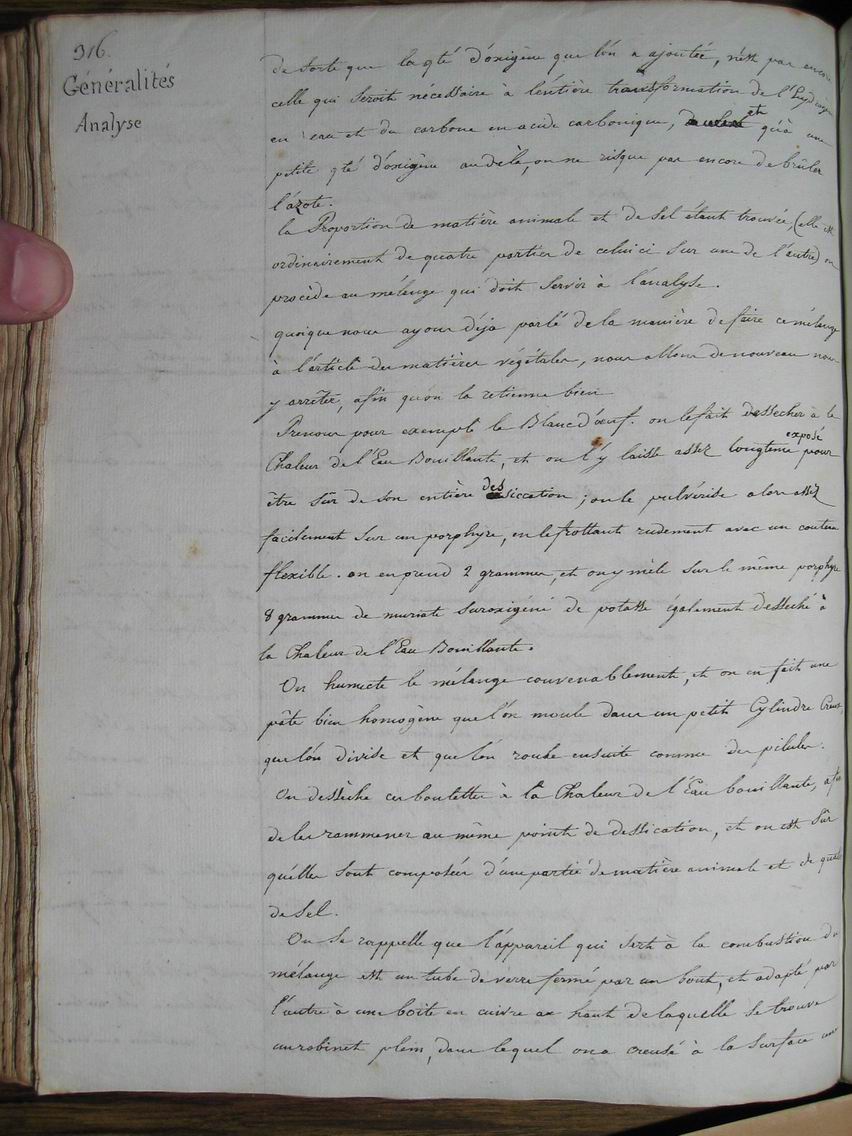 316.
Généralités
Analyse
de sorte que la qté d'oxigène que l'on a ajoutée, n'est pas encore
celle qui seroit nécessaire à l'entière transformation de l'hydrogène
en eau et du carbone en acide carbonique, et qu'à une
petite qté d'oxigène au delà, on ne risque pas encore de brûler
l'azote.
la Proportion de matière animale et de sel étant trouvée, (elle est
ordinairement de quatre parties de celui ci sur une de l'autre) on
procède au mélange qui doit servir à l'analyse.
quoique nous ayons déja parlé de la manière de faire ce mélange
à l'article des matières végétales, nous allons de nouveau nous
y arrêter, afin qu'on la retienne bien
Prenons pour exemple le Blanc d'œuf. on le fait dessecher à la
Chaleur de l'Eau Bouillante, et on l'y laisse assez longtems exposé pour
être sûr de son entière dessiccation ; on le pulvérise alors assez
facilement sur un porphyre, en le frottant rudement avec un couteau
flexible. on en prend 2 grammes, et on y mêle sur le même porphyre
8 grammes de muriate suroxigéné de potasse également desséché à
la Chaleur de l'Eau Bouillante.
On humecte le mélange convenablement, et on en fait une
pâte bien homogène que l'on moule dans un petit Cylindre Creux,
que l'on divise et que l'on roule ensuite comme des pilules.
On dessèche ces boulettes à la Chaleur de l'Eau bouillante, afin
de les rammener au même point de dessication, et on est sûr
qu'elles sont composées d'une partie de matière animale et de quatre
de sel.
On se rappelle que l'appareil qui sert à la combustion du
mélange est un tube de verre fermé par un bout, et adapté par
l'autre à une boite en cuivre au haut de laquelle se trouve
un robinet plein, dans lequel on a creusé à la surface une